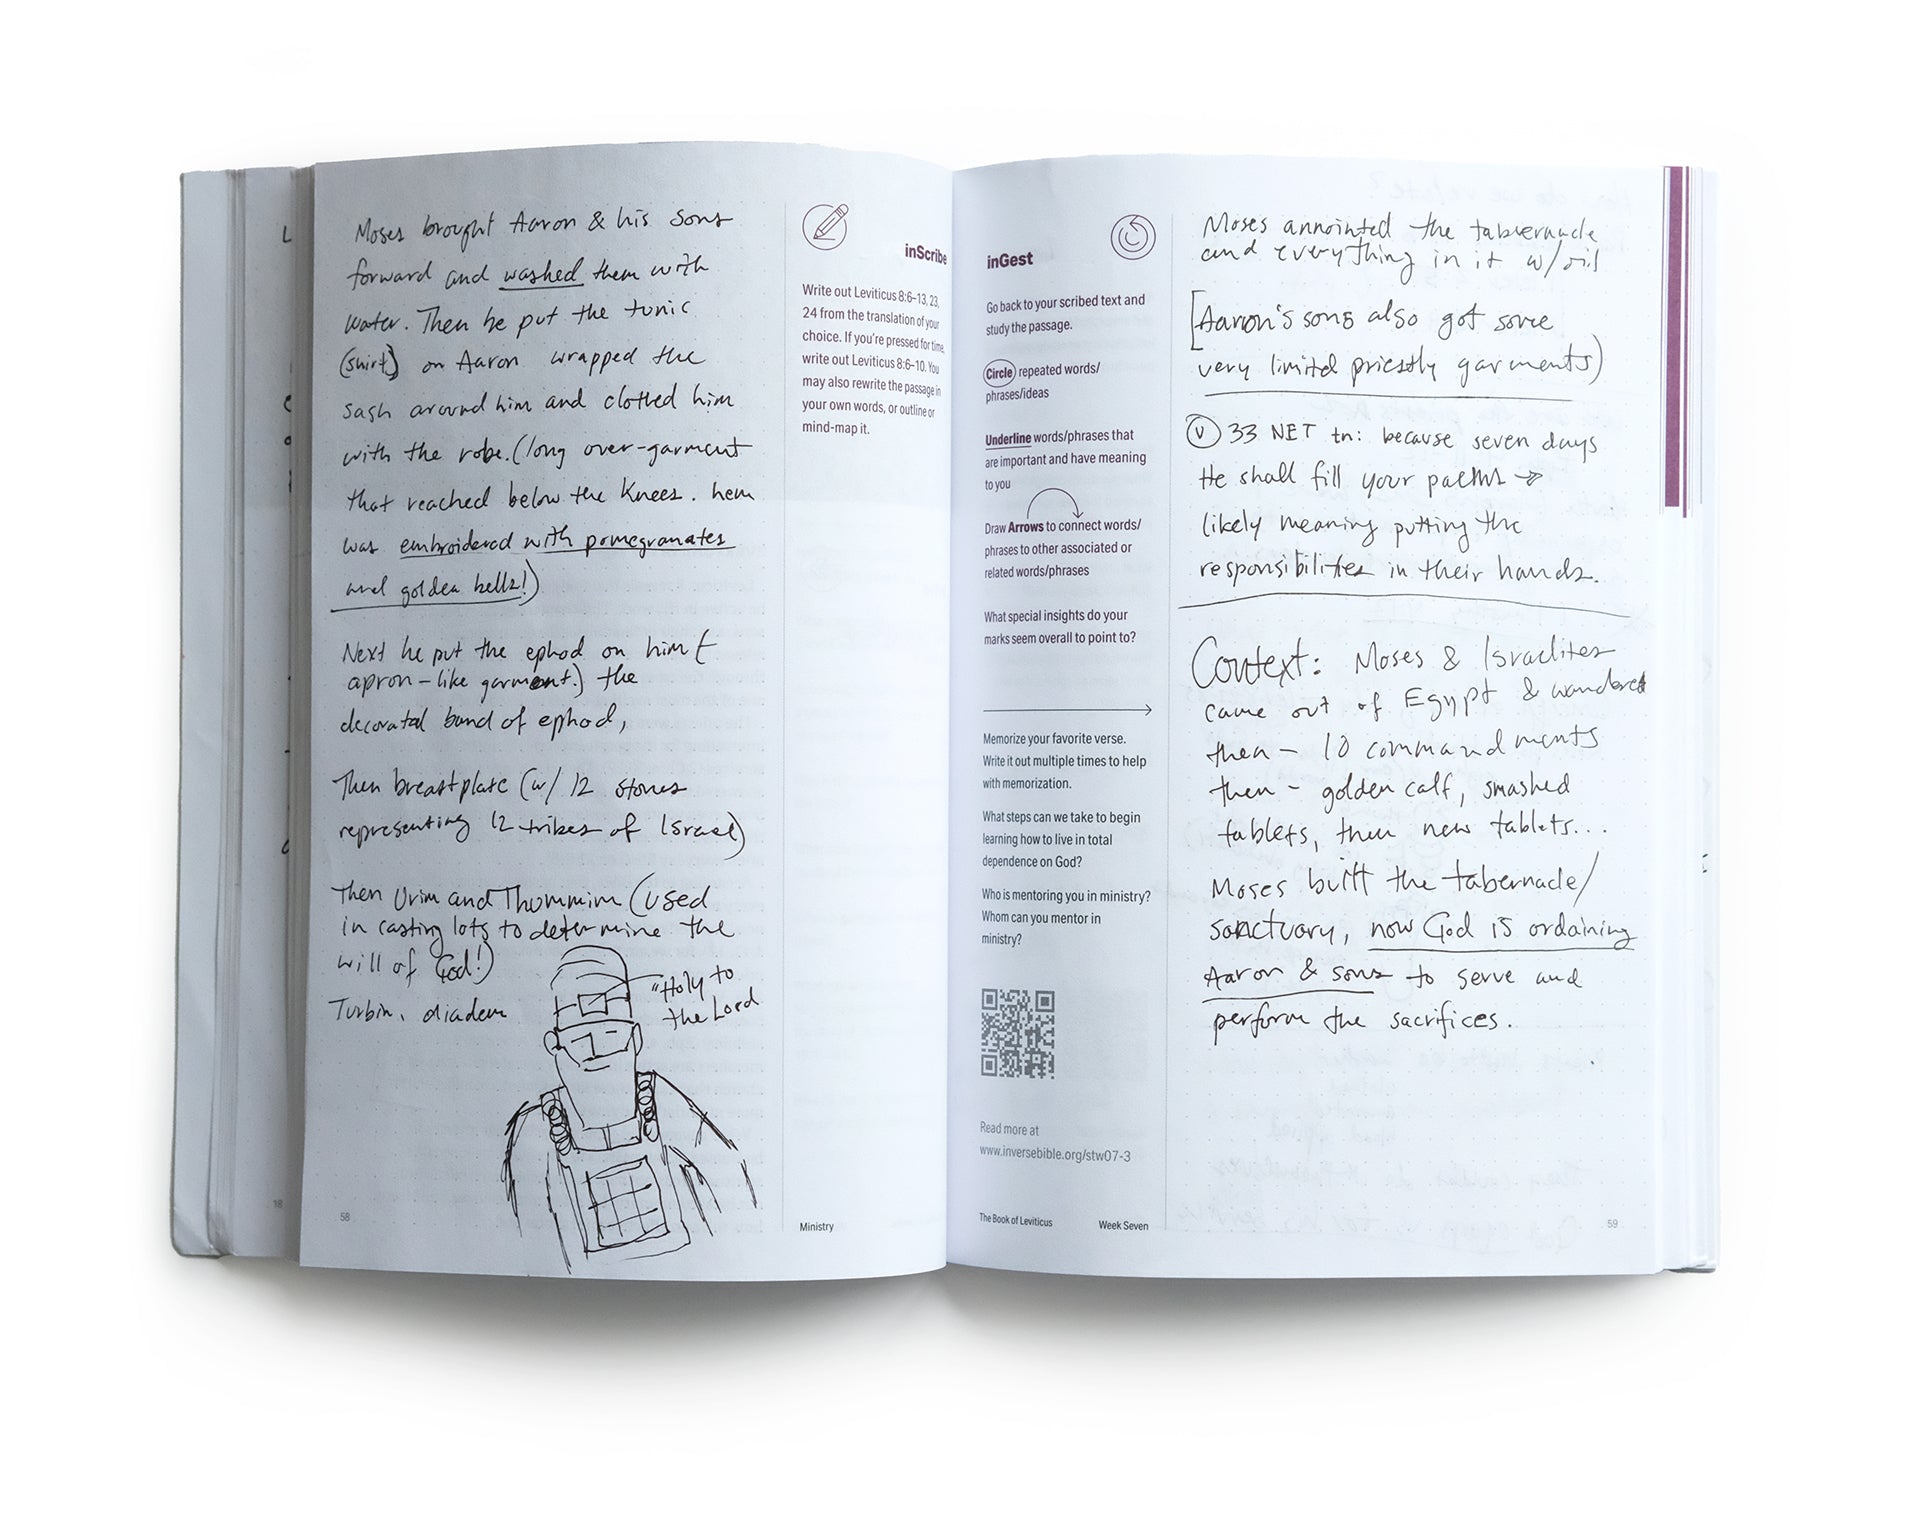 Moses brought Aaron & his sons
forward and washed them with
water. Then he put the tunic
(shirt) on Aaron wrapped the
sash around him and clothed him
with the robe. (long over-garment
that reached below the knees. hem
was embroidered with pomegranates
and golden bells!)
Next he put the ephod on him (
apron-like garment.) the
decorated band of ephod,
Then breastplate (w/ 12 stones
representing 12 tribes of Israel)
Then Urim and Thummim (used
in casting lots to determine the
will of God!)
Turbin, diadem
"Holy to
the Lord
58
inScribe
Write out Leviticus 8:6–13, 23,
24 from the translation of your
choice. If you're pressed for time,
write out Leviticus 8:6–10. You
may also rewrite the passage in
your own words, or outline or
mind-map it.
Ministry
18
inGest
Go back to your scribed text and
study the passage.
Circle repeated words/
phrases/ideas
Underline words/phrases that
are important and have meaning
to you
Draw Arrows to connect words/
phrases to other associated or
related words/phrases
What special insights do your
marks seem overall to point to?
Memorize your favorite verse.
Write it out multiple times to help
with memorization.
What steps can we take to begin
learning how to live in total
dependence on God?
Who is mentoring you in ministry?
Whom can you mentor in
ministry?
Read more at
www.inversebible.org/stw07-3
The Book of Leviticus
Week Seven
Moses annointed the tabernacle
and everything in it w/oil
[Aaron's sons also got some
very limited priestly garments)
v 33 NET tn: because seven days
He shall fill your palms →
likely meaning putting the
responsibilities in their hands.
Context: Moses & Israelites
came out of Egypt & wandered
then - 10 commandments
then - golden calf, smashed
tablets, then new tablets...
Moses built the tabernacle/
sanctuary, now God is ordaining
Aaron & sons to serve and
perform the sacrifices.
59